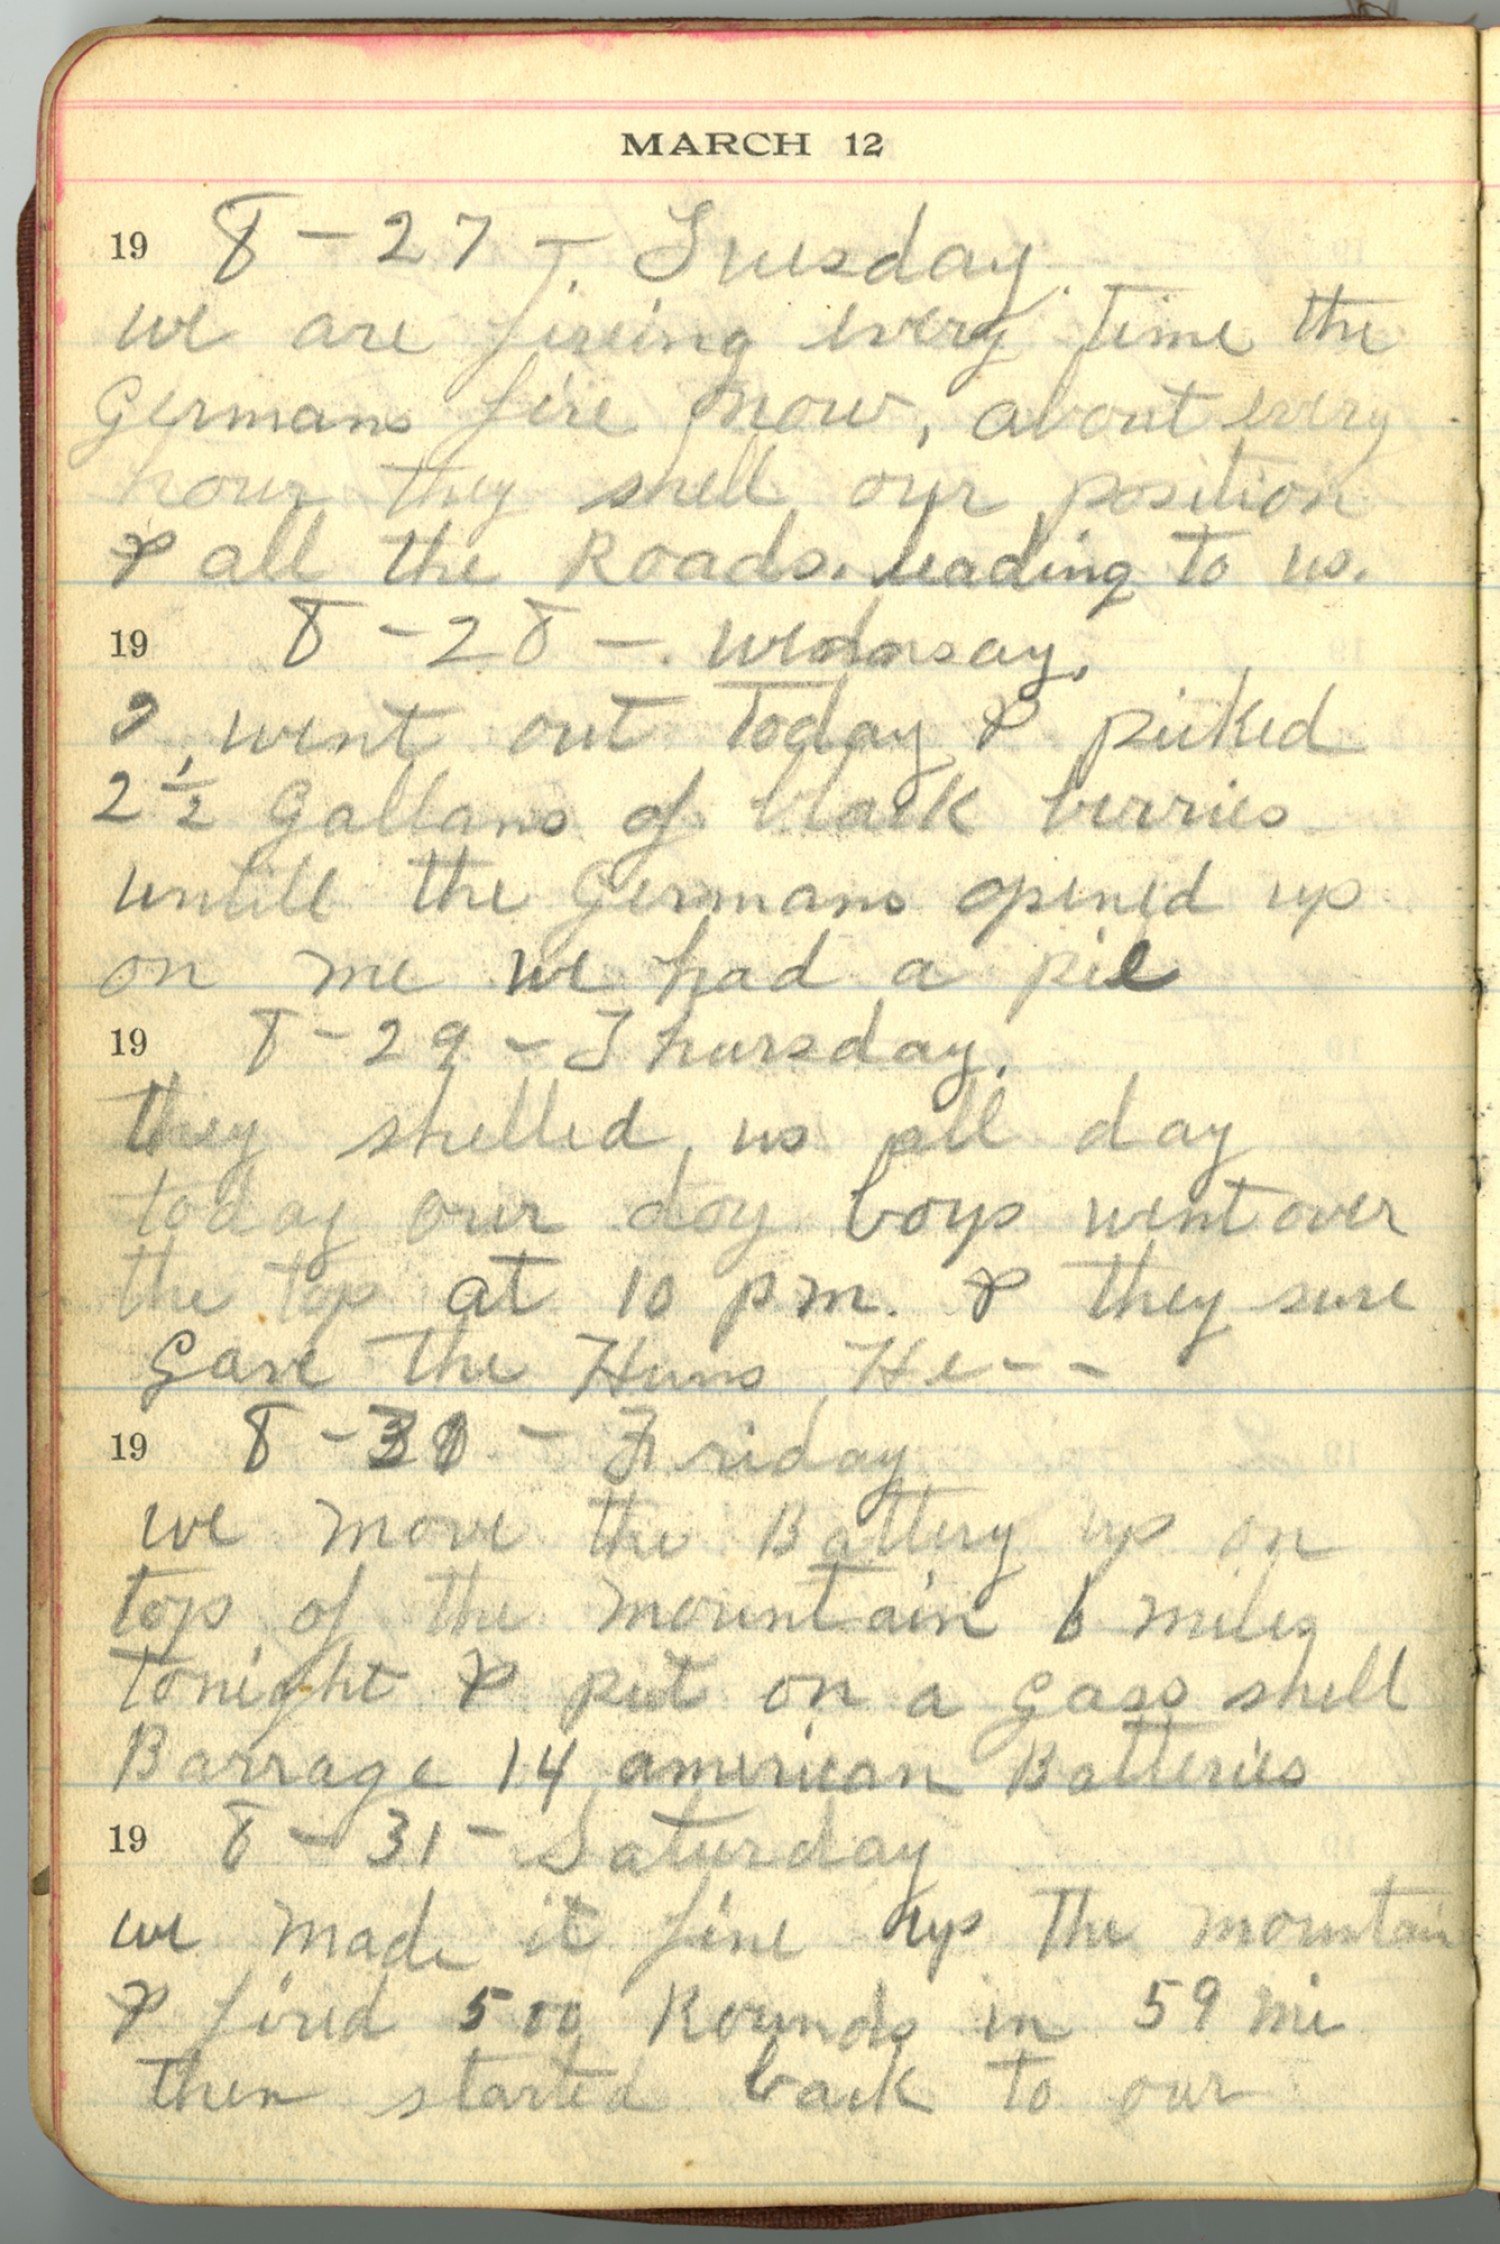 MARCH 12
19 8-27-. Tuesday.
we are fireing every time the
Germans fire now, about every
hour they shell our position
& all the Roads. leading to us.
19 8-28-. Wednsay.
I went out today & picked
2 1/2 Gallans of black berries
untill the Germans opened up
on me we had a pie
19 8-29-Thursday.
they shelled us all day
today our doy boys went over
the top at 10 pm. & they sure
Gave the Huns He--
19 8-30 - Friday
we move the Battery up on
top of the mountain 6 miles
tonight & put on a gass shell
Barrage 14 american Batteries
19 8-31-Saturday
we made it fine up the mountain
& fired 500 Rounds in 59 mi
then started back to our